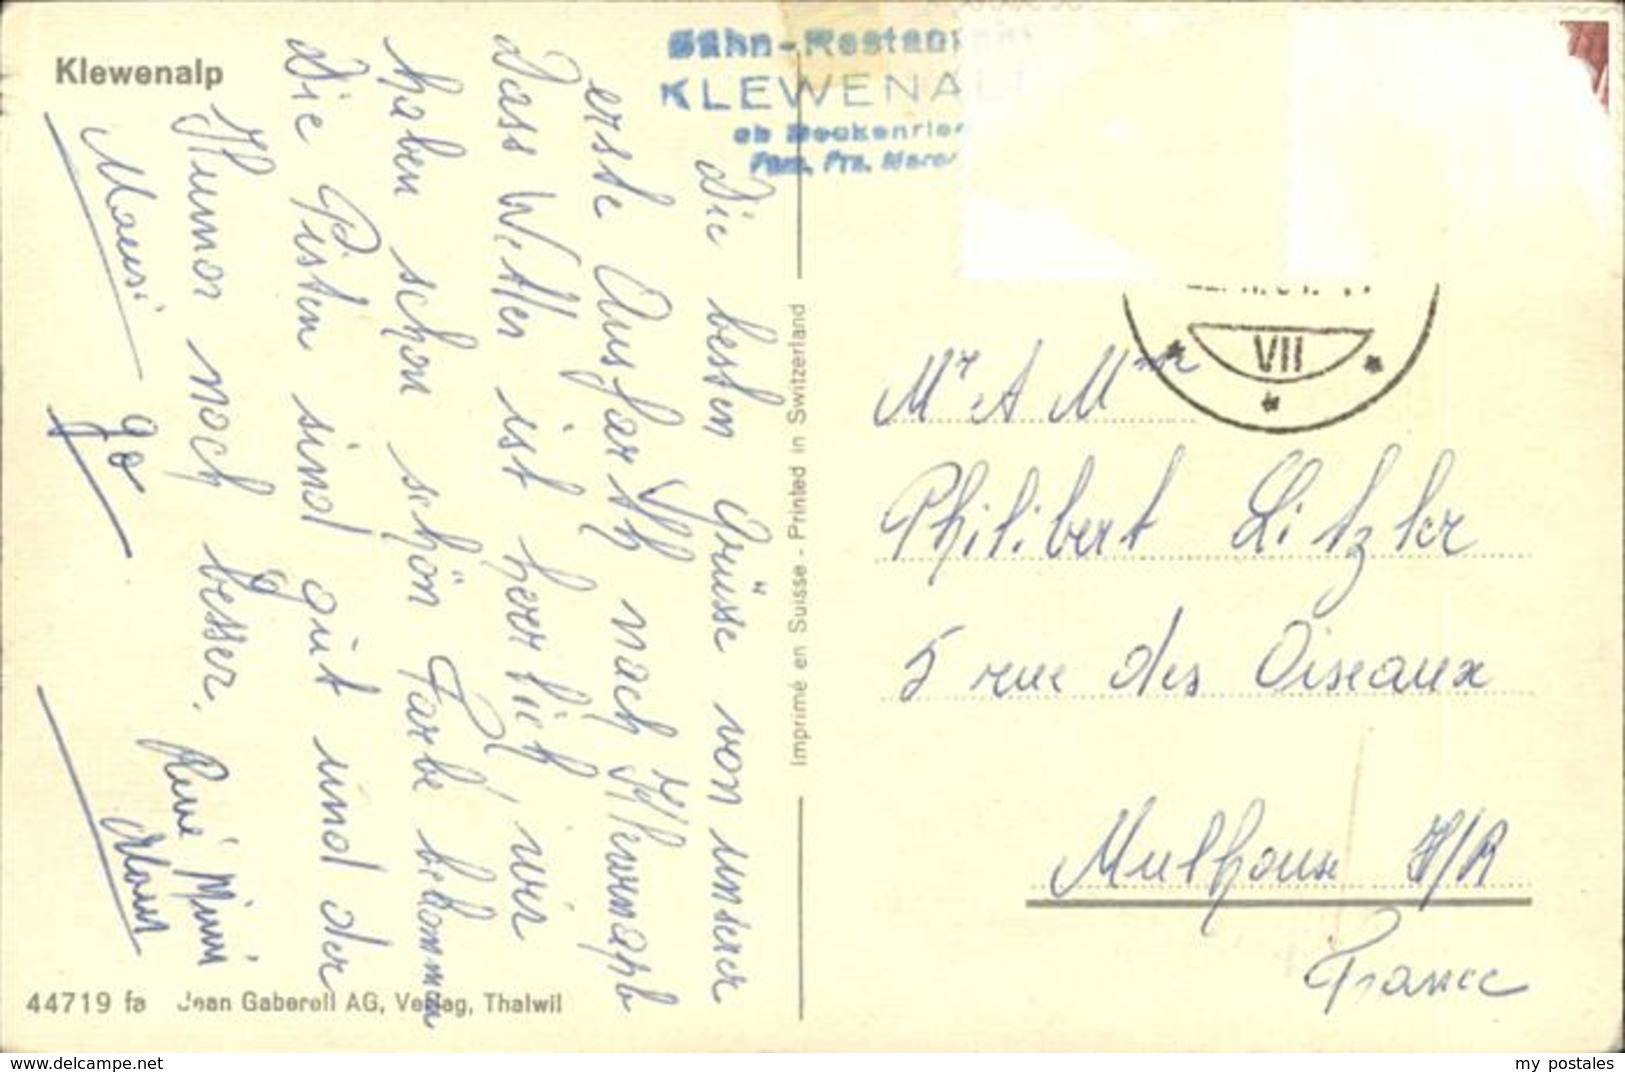 Klewenalp
Die besten Grüsse von unserer
erste Ausfarth nach Klewenapl
Dass Wetter ist herrlich, wir
haben schon schön Farbe bekommen
Die Pisten sind gut und der
Humor noch besser.
René Mimi
Mausi
44719 fa Jean Gaberell AG, Verlag, Thalwil
Imprimé en Suisse - Printed in Switzerland
Bahn-Restaur
KLEWENAL
ob Beckenried
Fam. Frz.
VII
Mr & Mme
Philibert Litzler
5 rue des Oiseaux
Mulhouse H/R
France
www.delcampe.net
my postales